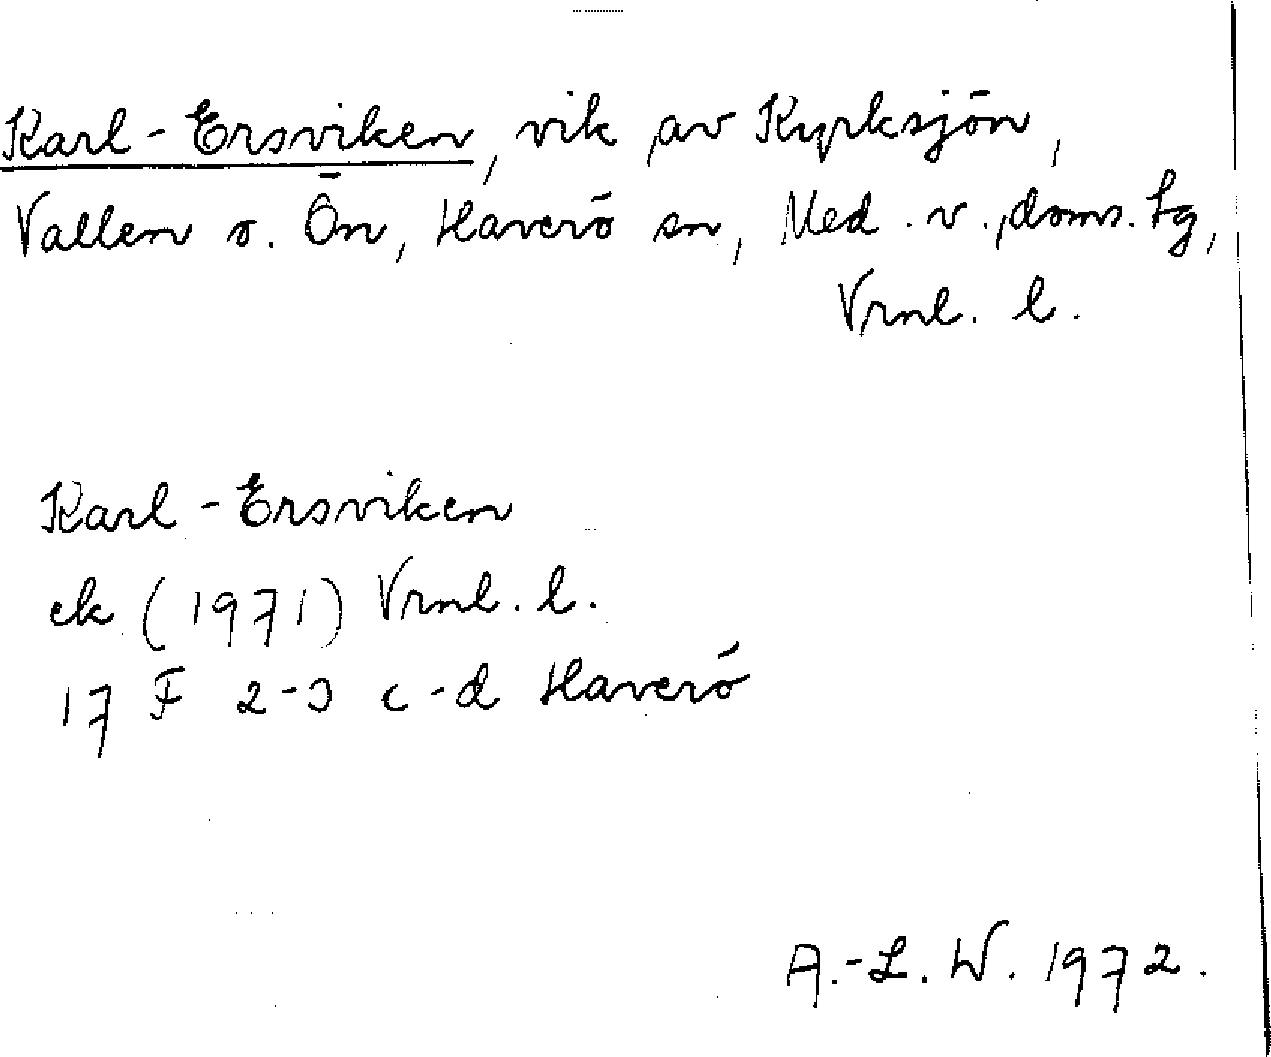 Karl-Ersviken, vik av Kyrksjön,
Vallen o. Ön, Haverö sn, Med. v. doms. tg,
Vrnl. l.
Karl-Ersviken
ek (1971) Vrnl. l.
17 F 2-3 c-d Haverö
A.-L. W. 1972.